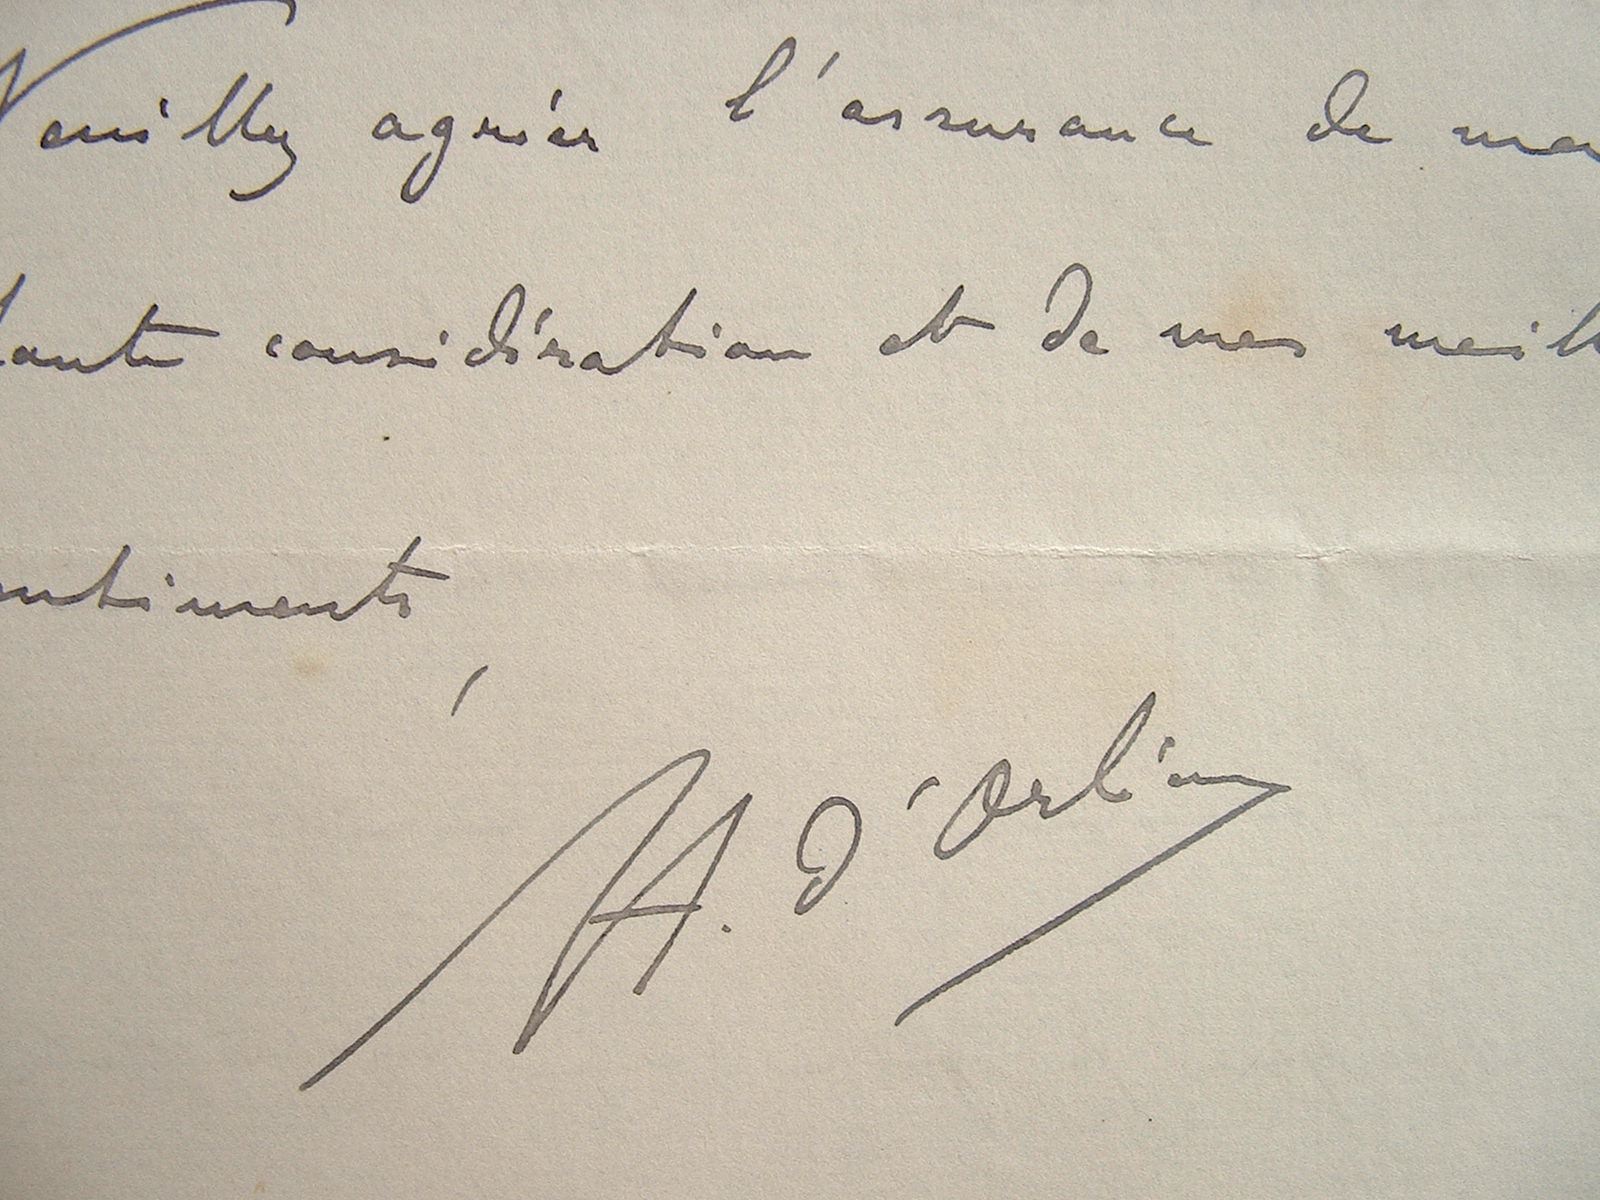 Veuillez agréer l'assurance de ma
haute considération et de mes meill
entiments
H. d'Orléans